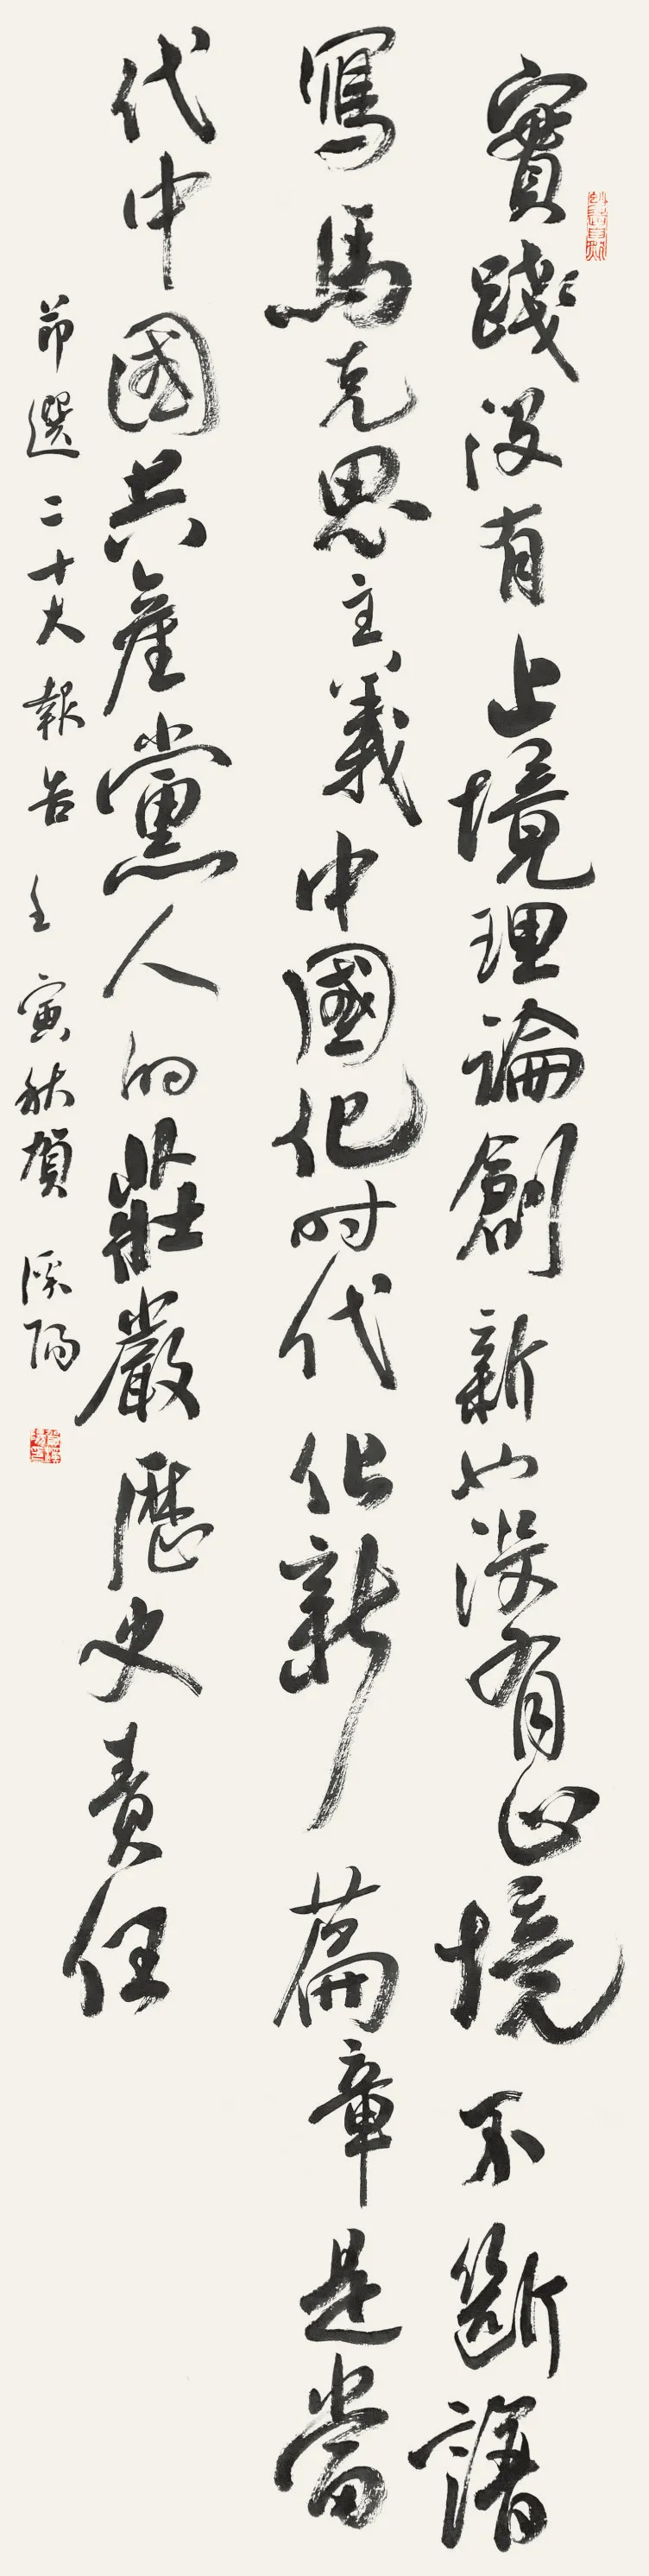 實踐没有止境理論創新也没有止境不斷譜
寫馬克思主義中國化时代化新篇章是當
代中國共産黨人的莊嚴歷史責任
節選二十大報告 壬寅秋賀溪陽